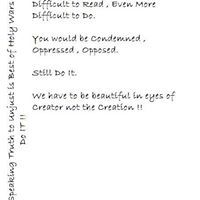 Speaking Truth to Unjust is Best of Holy Wars
Do IT !!
Difficult to Read , Even More
Difficult to Do.
You would be Condemned ,
Oppressed , Opposed.
Still Do It.
We have to be beautiful in eyes of
Creator not the Creation !!